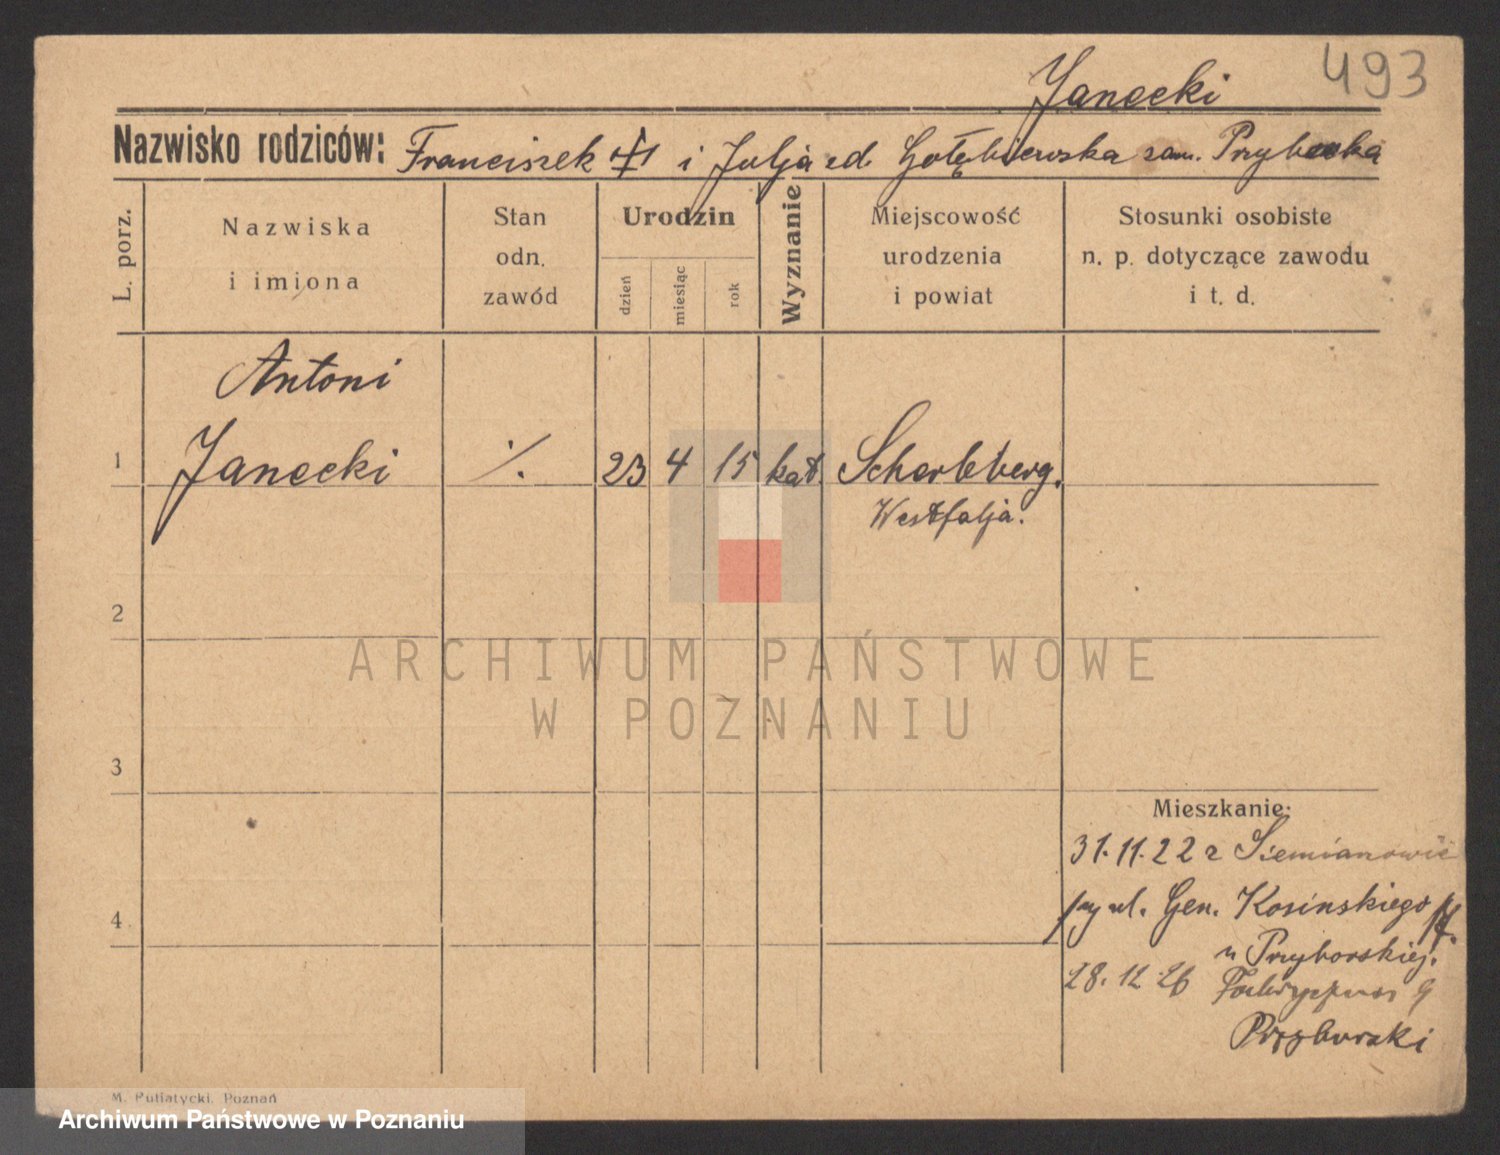 493
Janecki
Nazwisko rodziców: Franciszek i Julja zd Gołębiewska zam. Przyborska
L. porz.
Nazwiska
i imiona
Stan
odn.
zawód
Urodzin
dzień
miesiąc
rok
Wyznanie
Miejscowość
urodzenia
i powiat
Stosunki osobiste
n. p. dotyczące zawodu
i t. d.
Antoni
1 Janecki ./. 23 4 15 kat. Scherleberg.
Westfalja.
2
ARCHIWUM PAŃSTWOWE
W POZNANIU
3
Mieszkanie:
31.11.22 z Siemianowic
4 ul. Gen. Kosinskiego
u Przyborskiej.
28.12 26
Przyborski
M. Putiatycki, Poznań
Archiwum Państwowe w Poznaniu